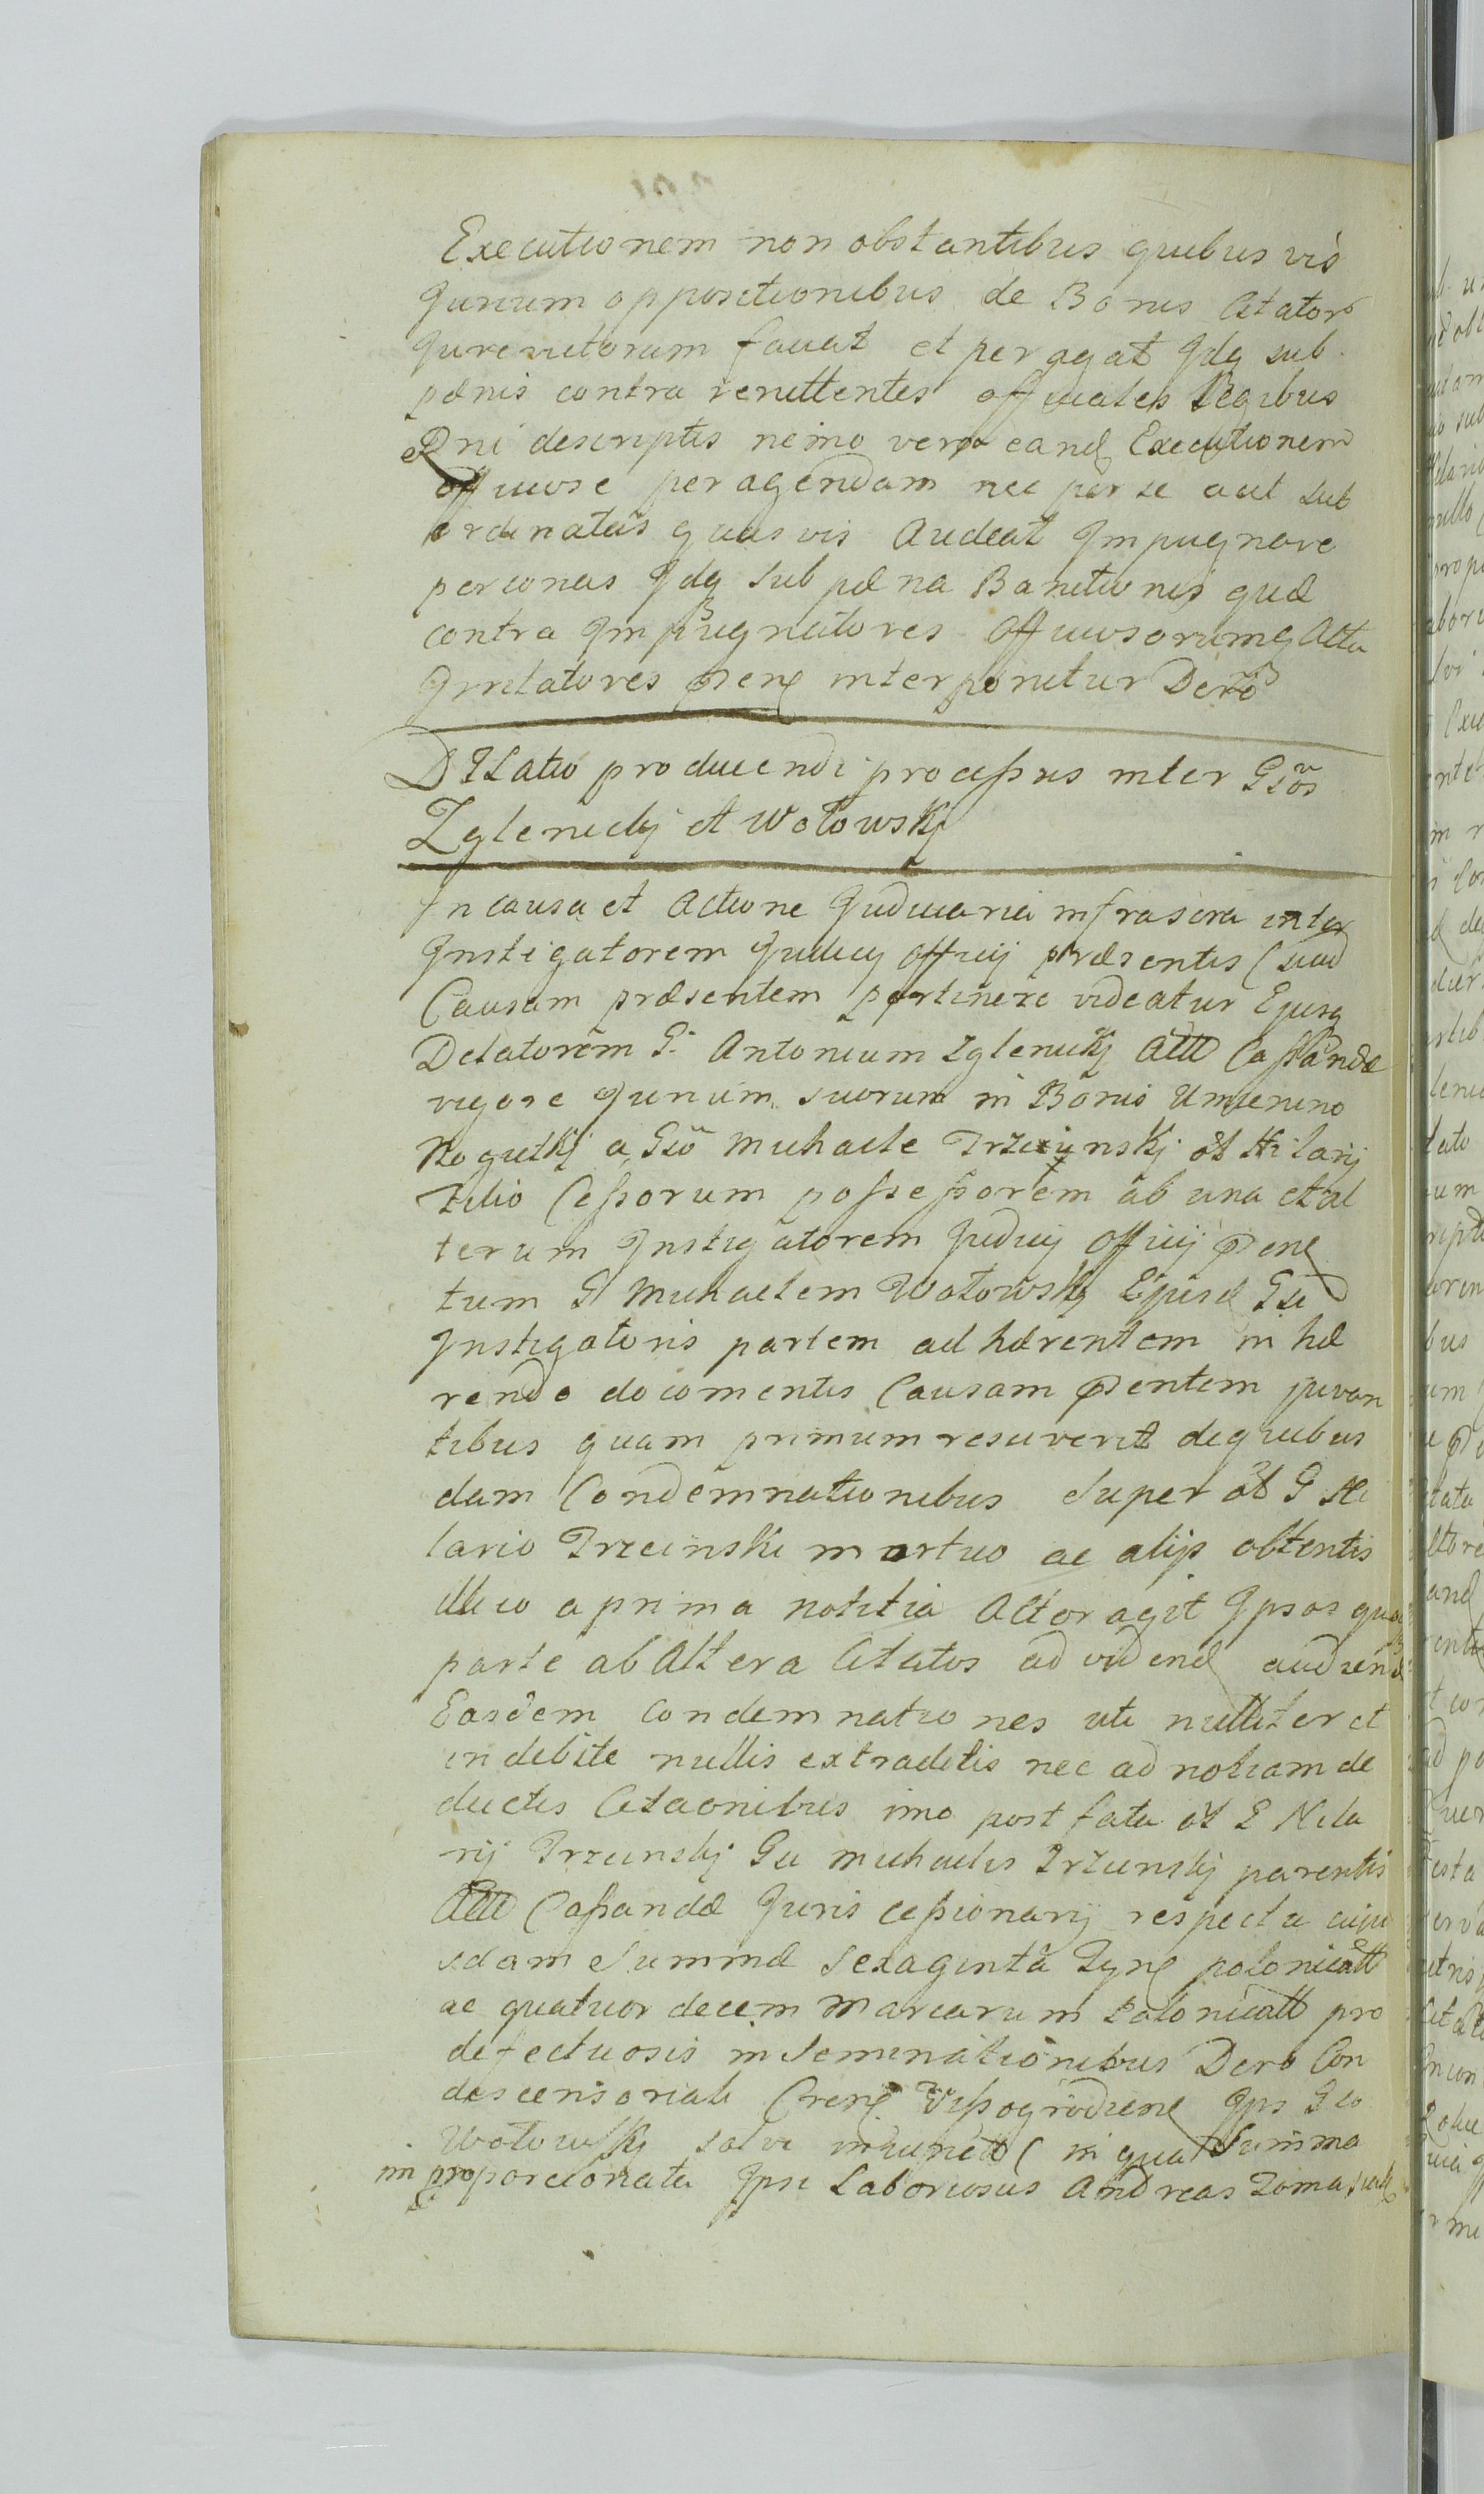 Executionem non obstantibus quibus vis
Jurium oppositionibus de Bonis Citator
Jurevictorum faciat et peragat Idq sub
pænis contra renittentes officiales Legibus
Rni descriptis nemo vero eand Executionem
officiose peragendam nec per se aut sub
ordinatas quas vis Audeat Impugnare
personas Idq sub pæna Banitionis quæ
contra Impugnatores officiosorumq Actu
Irritatores pren interponitur Decro
Dilatio producendi processus inter Gsos
Zglenicky et Wołowsky
In causa et Actione Judiciaria infrascra inter
Instigatorem Judicy Officij præsentis (siad
Causam præsentem pertinere videatur Ejusq
Delatorem G. Antonium Zglenicky Att Cassandæ
vigore Jurium suorum in Bonis Umienino
Rogutky a Gso Michaele Trzcinskj ol Hilarij
Filio Cessorum possessorem ab una et al
terum Instigatorem Judicij Officij pren
tum G Michaelem Wołowsky Ejusd Gsi
Instigatoris partem adhærentem in hæ
rendo documentis Causam prentem juvan
tibus quam primum resciverit de quibus
dam Condemnationibus super ol G Hi
lario Trzcinski mortuo ac alijs obtentis
illico a prima notitia Actor agit Ipsos que
parte ab Altera Citatos ad vidend audiend
Easdem Condemnationes uti nulliter et
indebite nullis extraditis nec ad notiam de
ductis Citaonibus imo post fata ol G Hila
rij Trzcinsky Gsi Michaelis Trzcinsky parentis
Att Cassandæ Juris cessionarij respectu cuju
sdam Summæ sexaginta Tynf polonicall
ac quatuor decem Marcarum Polonicall pro
defectuosis inseminationibus Decro Con
descensoriali Cren Vissogrodien Ips Gso
Wołowsky solvi injunctt (in qua Summa
improporcionata Ipse Laboriosus Andreas Tomasik